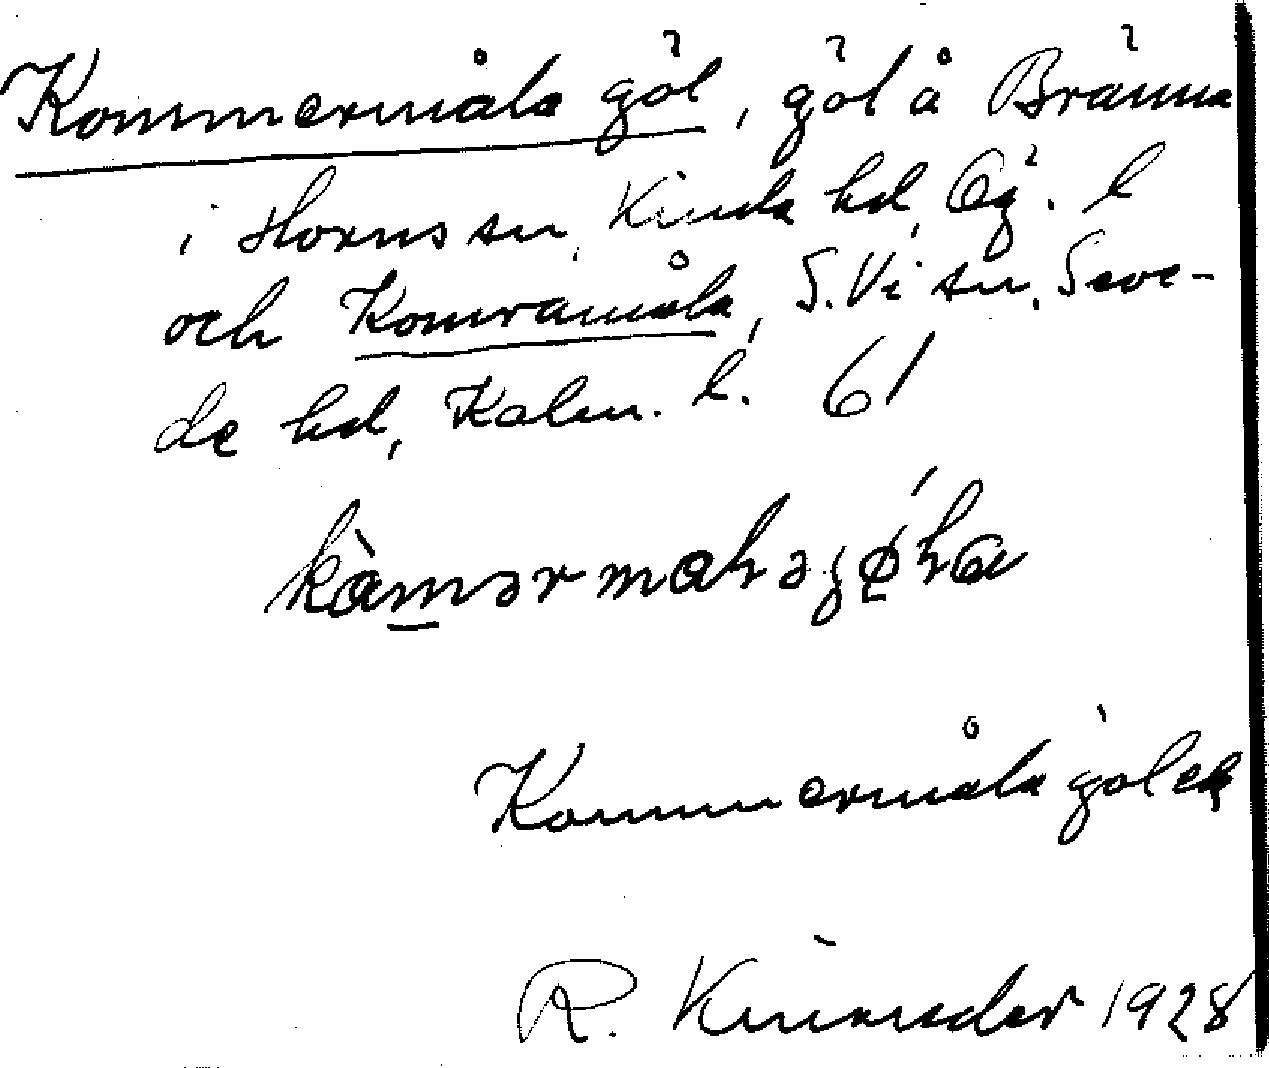 Kommermåla göl, göl å Bränna
i Horns sn, Kinda hd, Ög. l
och Komramåla, S. Vi sn, Seve-
de hd, Kalm. l. 61
Kommermåla gölen
R. 1928